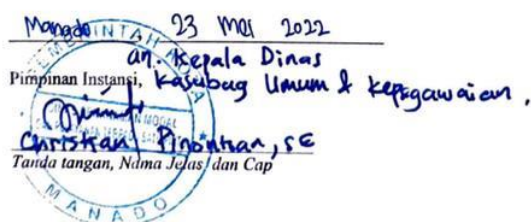 Manado 23 Mei 2022
an. Kepala Dinas
Pimpinan Instansi, Kasubag Umum & Kepegawaian.
Christian Pinontoan, SE
Tanda tangan, Nama Jelas dan Cap
MANADO